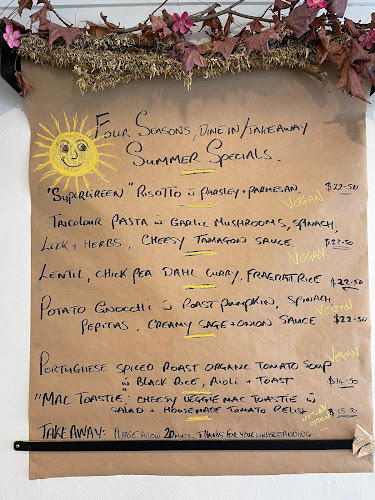 Four Seasons, Dine in/Takeaway
Summer Specials.
"Supergreen" Risotto w Parsley + Parmesan, $22.50
Vegan
Tricolour Pasta w Garlic Mushrooms, Spinach,
Leek + Herbs, Cheesy Tarragon Sauce, $22.50
Vegan
Lentil, Chick Pea Dahl Curry, Fragrat Rice $22.50
Potato Gnocchi w Roast Pumpkin, Spinach Vegan
Pepitas, Creamy Sage + Onion Sauce $22.50
Portuguese Spiced Roast Organic Tomato Soup Vegan
w Black Rice, Aioli + Toast $14.50
"Mac Toastie": Cheesy Veggie Mac Toastie w
Salad + Housemade Tomato Relish Vegan Option $15.50
Takeaway: Please Allow 20 mins. Thanks for your understanding